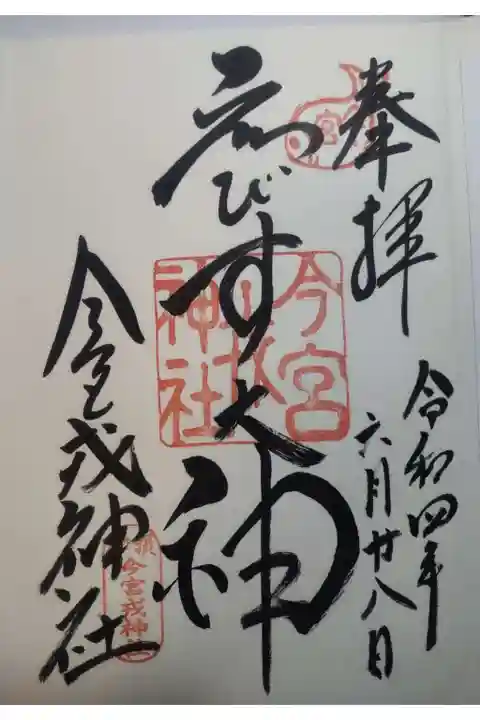 奉拝
令和四年
六月廿八日
ゑびす大神
今宮戎神社
今宮戎神社
今宮戎神社